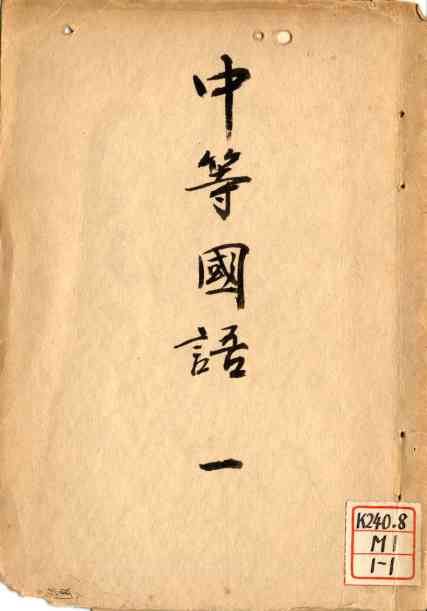 中等國語 一
K240.8
M1
1-1